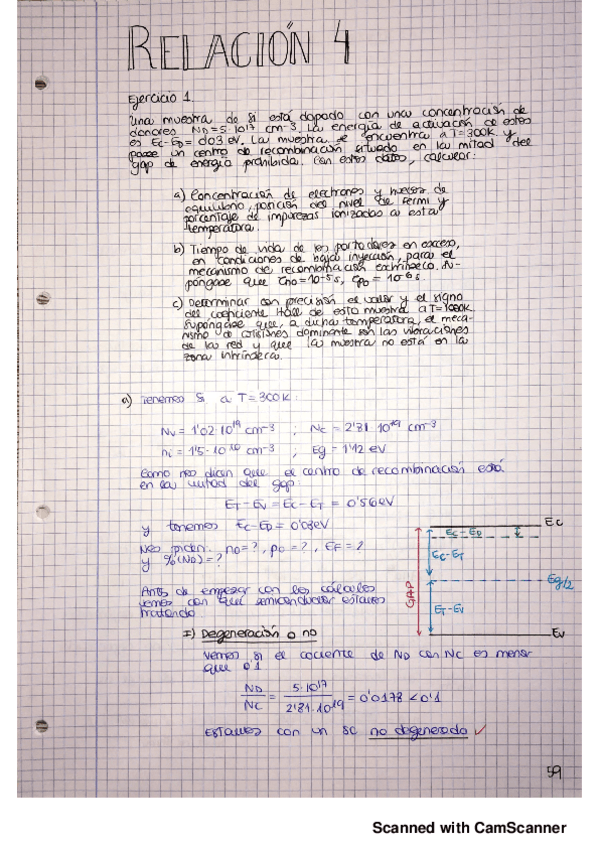 RELACIÓN 4
Ejercicio 1.
Una muestra de Si está dopado con una concentración de
donores ND=5·10¹⁷ cm-3. La energía de activación de estos
es EC-ED= 0'03 eV. La muestra se encuentra a T=300K y
posee un centro de recombinación situado en la mitad del
gap de energía prohibida. Con estos datos, calcular:
a) Concentración de electrones y huecos de
equilibrio, posición del nivel de Fermi y
porcentaje de impurezas ionizadas a esta
temperatura.
b) Tiempo de vida de los portadores en exceso,
en condiciones de baja inyección, para el
mecanismo de recombinación extrínseco. Su-
póngase que τno=10-5s, τpo = 10-6s
c) Determinar con precisión el valor y el signo
del coeficiente Hall de esta muestra a T=1000K.
Supóngase que, a dicha temperatura, el meca-
nismo de colisiones dominante son las vibraciones
de la red y que la muestra no está en la
zona intrínseca.
a) Tenemos Si a T=300K:
NV = 1'02·10¹⁹ cm-3 ; NC = 2'81·10¹⁹ cm-3
ni = 1'5·10¹⁰ cm-3 ; Eg = 1'12 eV
Como nos dicen que el centro de recombinación está
en la mitad del gap:
ET-EV = EC-ET = 0'56eV
y tenemos EC-ED = 0'03eV
Nos piden: no=?, po=?, EF=?
y %(ND)=?
Antes de empezar con los cálculos
vemos con qué semiconductor estamos
tratando.
EC
EC-ED
EC-ET
GAP
Eg/2
ET-EV
EV
I) Degeneración o no
Vemos si el cociente de ND con NC es menor
que 0'1
ND/NC = 5·10¹⁷/2'81·10¹⁹ = 0'0178 < 0'1
Estamos con un SC no degenerado ✓
59
Scanned with CamScanner